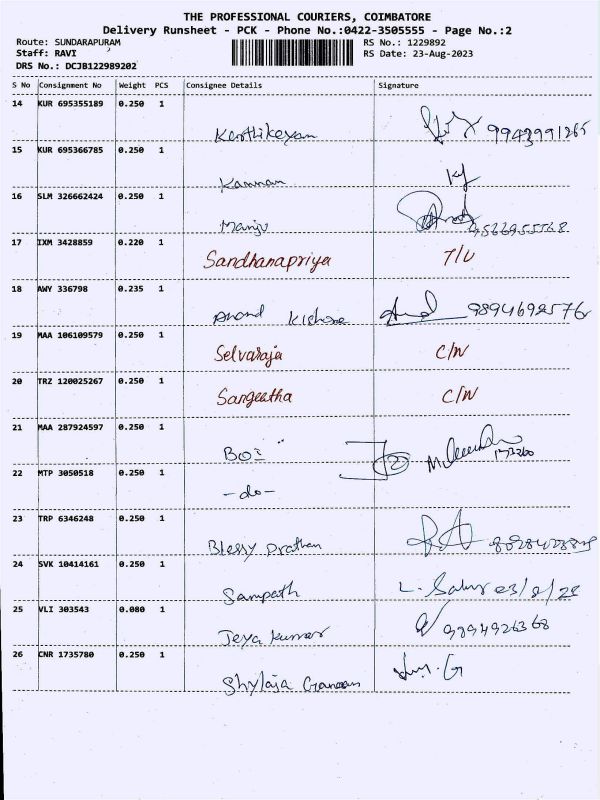 THE PROFESSIONAL COURIERS, COIMBATORE
Delivery Runsheet - PCK - Phone No.:0422-3505555 - Page No.:2
Route: SUNDARAPURAM RS No.: 1229892
Staff: RAVI RS Date: 23-Aug-2023
DRS No.: DCJB122989202
S No Consignment No Weight PCS Consignee Details Signature
14 KUR 695355189 0.250 1
Karthikeyan 9943991265
15 KUR 695366785 0.250 1
Kannan
16 SLM 326662424 0.250 1
Manju
17 IXM 3428859 0.220 1
Sandhanapriya T/U
18 AWY 336798 0.235 1
Anand Kishore 9894692576
19 MAA 106109579 0.250 1
Selvaraja C/N
20 TRZ 120025267 0.250 1
Sangeetha C/N
21 MAA 287924597 0.250 1
BOI
22 MTP 3050518 0.250 1
-do-
23 TRP 6346248 0.250 1
Blessy Prathan
24 SVK 10414161 0.250 1
Sampath
25 VLI 303543 0.080 1
Jeya Kumar 9894926368
26 CNR 1735780 0.250 1
Shylaja